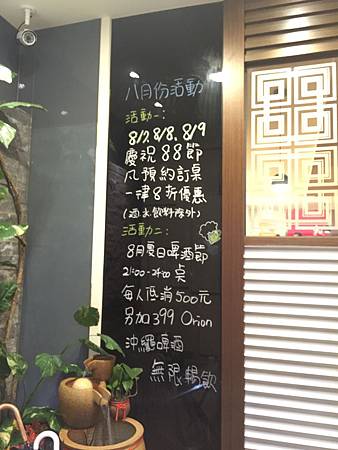 八月份活動
活動一:
8/2, 8/8, 8/9
慶祝88節
凡預約訂桌
一律8折優惠
(酒水飲料除外)
活動二:
8月夏日啤酒節
21:00-24:00 桌
每人低消500元
另加399 Orion
沖繩啤酒
無限暢飲